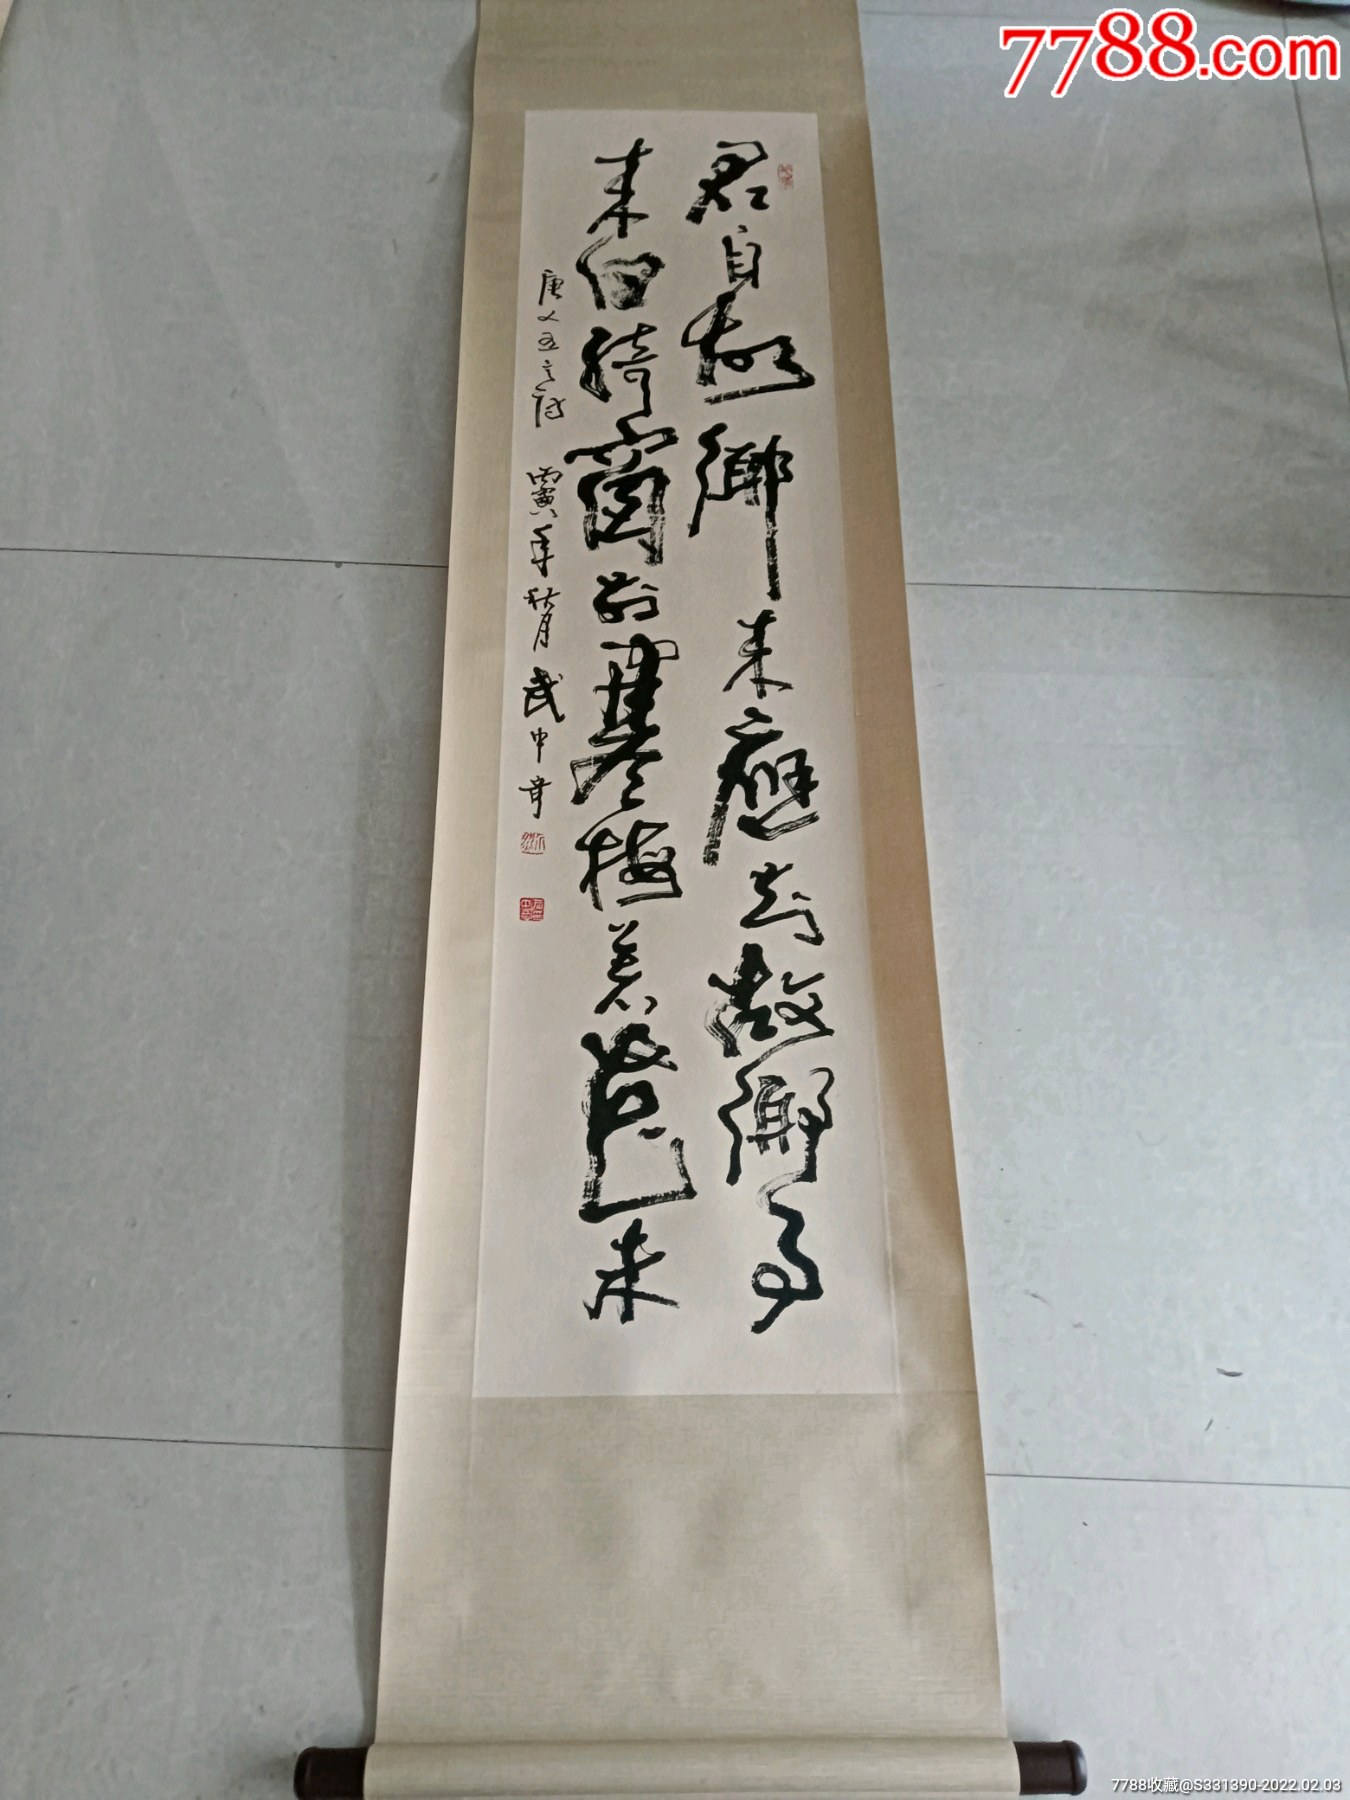 7788.com
君自故鄉来應知故鄉事
来日綺窗前寒梅著花未
唐人五言詩 丙寅年秋月 武中奇
7788收藏@S331390-2022.02.03